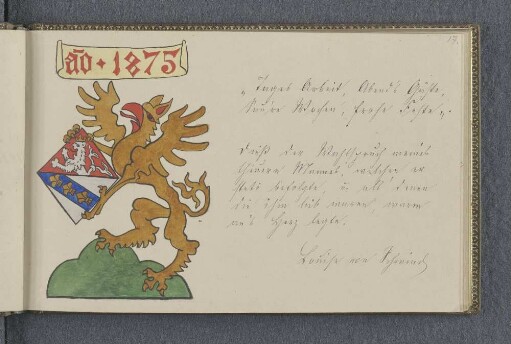 año · 1875
17.
„Tages Arbeit, Abends Gäste,
Saure Wochen, frohe Feste„.
Dieß der Wahlspruch meines
theuern Mannes, welchen er
stets befolgte, u. all denen
die ihm lieb waren, warm
an's Herz legte.
Louise von Schwind